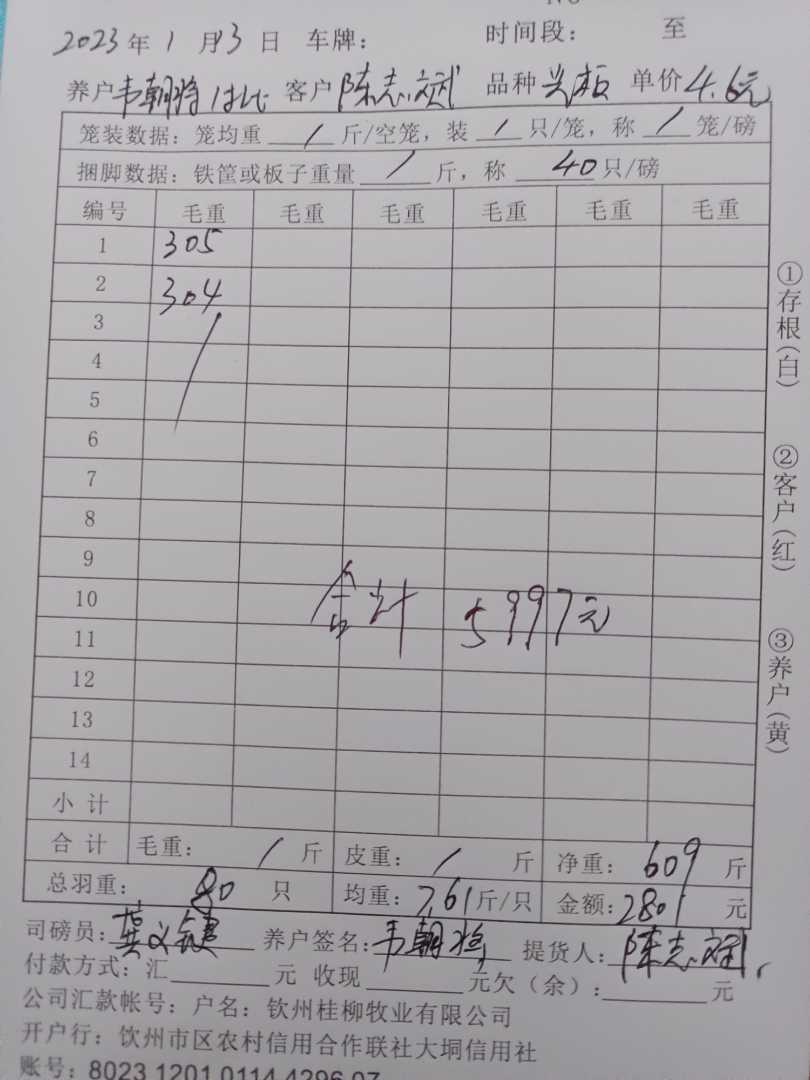 2023年 1月13日 车牌： 时间段： 至
养户韦朝将 客户 陈志斌 品种 单价4.6元
笼装数据：笼均重 / 斤/空笼，装 / 只/笼，称 / 笼/磅
捆脚数据：铁筐或板子重量 / 斤，称 40只/磅
编号 毛重 毛重 毛重 毛重 毛重 毛重
1 305
2 304
3
4
5
6
7
8
9
10
合计 5997元
11
12
13
14
小计
合计 毛重： / 斤 皮重： / 斤 净重： 609 斤
总羽重： 80 只 均重：7.61斤/只 金额：2801 元
司磅员：莫义键 养户签名：韦朝将 提货人：陈志斌
付款方式：汇 元 收现 元欠（余）： 元
公司汇款帐号：户名：钦州桂柳牧业有限公司
开户行：钦州市区农村信用合作联社大垌信用社
账号：8023 1201 0114 4296 07
①存根（白）
②客户（红）
③养户（黄）